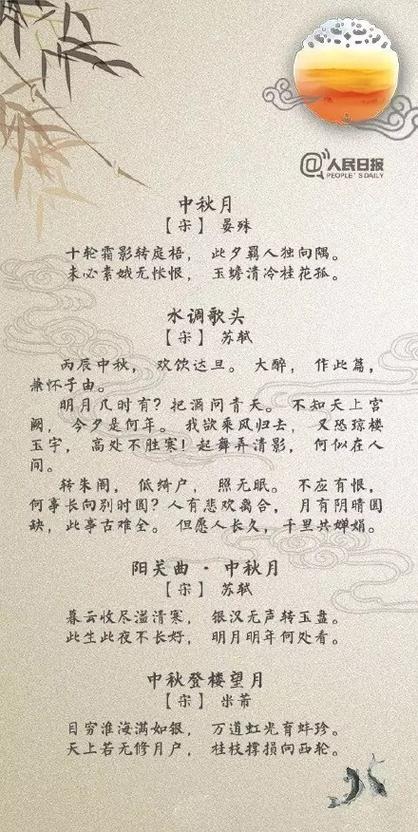 @人民日报
PEOPLE'S DAILY
中秋月
【宋】 晏殊
十轮霜影转庭梧， 此夕羁人独向隅。
未必素娥无怅恨， 玉蟾清冷桂花孤。
水调歌头
【宋】 苏轼
丙辰中秋， 欢饮达旦。 大醉， 作此篇，
兼怀子由。
明月几时有？把酒问青天。 不知天上宫
阙， 今夕是何年。 我欲乘风归去， 又恐琼楼
玉宇， 高处不胜寒！起舞弄清影， 何似在人
间。
转朱阁， 低绮户， 照无眠。 不应有恨，
何事长向别时圆？人有悲欢离合， 月有阴晴圆
缺，此事古难全。 但愿人长久，千里共婵娟。
阳关曲 · 中秋月
【宋】 苏轼
暮云收尽溢清寒， 银汉无声转玉盘。
此生此夜不长好， 明月明年何处看。
中秋登楼望月
【宋】 米芾
目穷淮海满如银， 万道虹光育蚌珍。
天上若无修月户， 桂枝撑损向西轮。